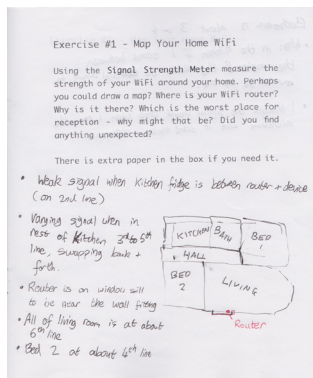 Exercise #1 - Map Your Home WiFi
Using the Signal Strength Meter measure the
strength of your WiFi around your home. Perhaps
you could draw a map? Where is your WiFi router?
Why is it there? Which is the worst place for
reception - why might that be? Did you find
anything unexpected?
There is extra paper in the box if you need it.
• Weak signal when Kitchen fridge is between router + device
(on 2nd line)
• Varying signal when in
rest of Kitchen 3rd to 5th
line, swapping back +
forth.
• Router is on window sill
to be near the wall fitting
• All of living room is at about
6th line
• Bed 2 at about 4th line
KITCHEN
BATH
BED
HALL
BED
2
LIVING
Router